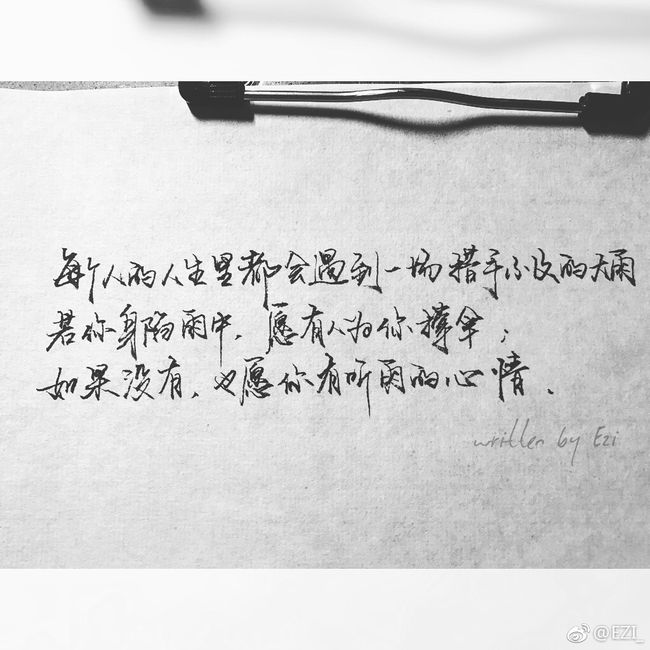 每个人的人生里都会遇到一场措手不及的大雨
若你身陷雨中，愿有人为你撑伞；
如果没有，也愿你有听雨的心情．
written by Ezi
@EZI_